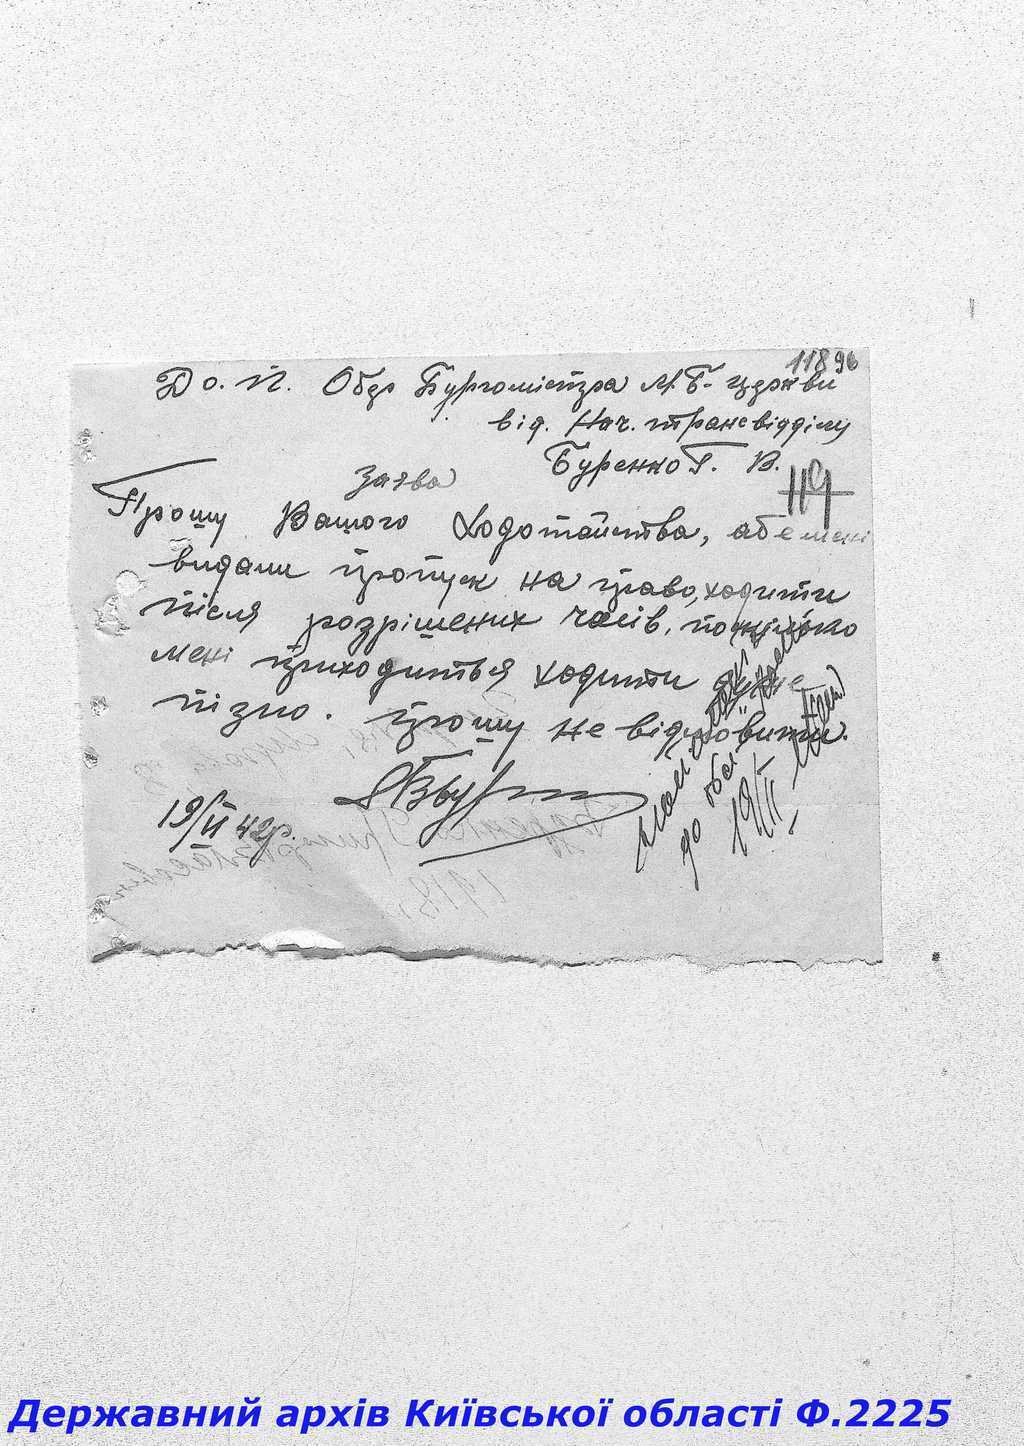 11896
До. П. Обер Бургомістра м. Б-церкви
від. Нач. трансвідділу
Буренко Г. В.
119
Заява
Прошу Вашого Ходотайства, абе мені
видали пропуск на право, ходити
після розрішених часів, поскілько
мені приходиться ходити дуже
пізно. Прошу не відмовити.
19/II 42р.
до
19/II
Державний архів Київської області Ф.2225